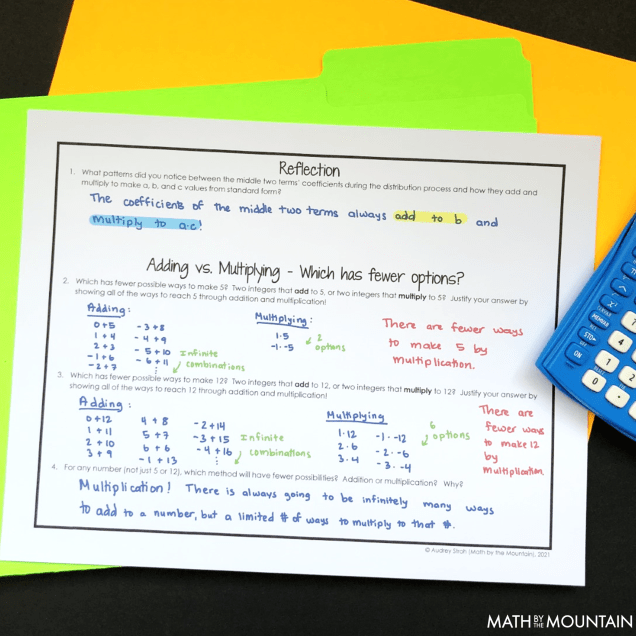 Reflection
1. What patterns did you notice between the middle two terms' coefficients during the distribution process and how they add and
multiply to make a, b, and c values from standard form?
The coefficients of the middle two terms always add to b and
multiply to a·c!
Adding vs. Multiplying - Which has fewer options?
2. Which has fewer possible ways to make 5? Two integers that add to 5, or two integers that multiply to 5? Justify your answer by
showing all of the ways to reach 5 through addition and multiplication!
Adding:
0+5
1+4
2+3
-1+6
-2+7
-3+8
-4+9
-5+10
-6+11
⋮
Infinite
combinations
Multiplying:
1·5
-1·-5
2
options
There are fewer ways
to make 5 by
multiplication.
3. Which has fewer possible ways to make 12? Two integers that add to 12, or two integers that multiply to 12? Justify your answer by
showing all of the ways to reach 12 through addition and multiplication!
Adding:
0+12
1+11
2+10
3+9
4+8
5+7
6+6
-1+13
-2+14
-3+15
-4+16
⋮
Infinite
combinations
Multiplying
1·12
2·6
3·4
-1·-12
-2·-6
-3·-4
6
options
There are
fewer ways
to make 12
by
multiplication.
4. For any number (not just 5 or 12), which method will have fewer possibilities? Addition or multiplication? Why?
Multiplication! There is always going to be infinitely many ways
to add to a number, but a limited # of ways to multiply to that #.
© Audrey Stroh (Math by the Mountain), 2021
x²
MEMBER
STO▸
ON
1
4
0
2
MATH BY THE MOUNTAIN